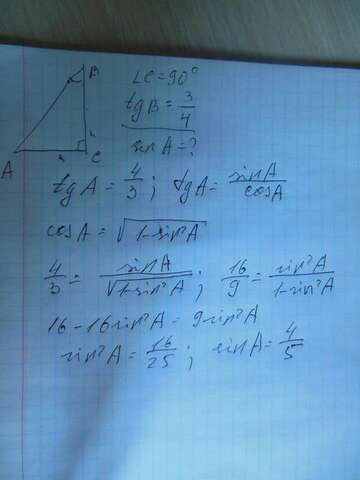 B
∠C = 90°
tgB = 3/4
A
C
sin A = ?
tg A = 4/3 ; tgA = sinA/cosA
cosA = √(1-sin²A)
4/3 = sinA/√(1-sin²A) ; 16/9 = sin²A/(1-sin²A)
16 - 16sin²A = 9sin²A
sin²A = 16/25 ; sinA = 4/5